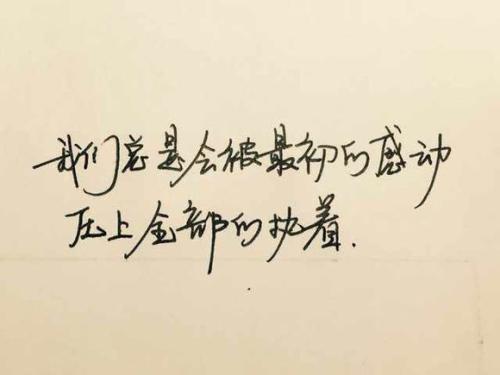 我们总是会被最初的感动
压上全部的执着.